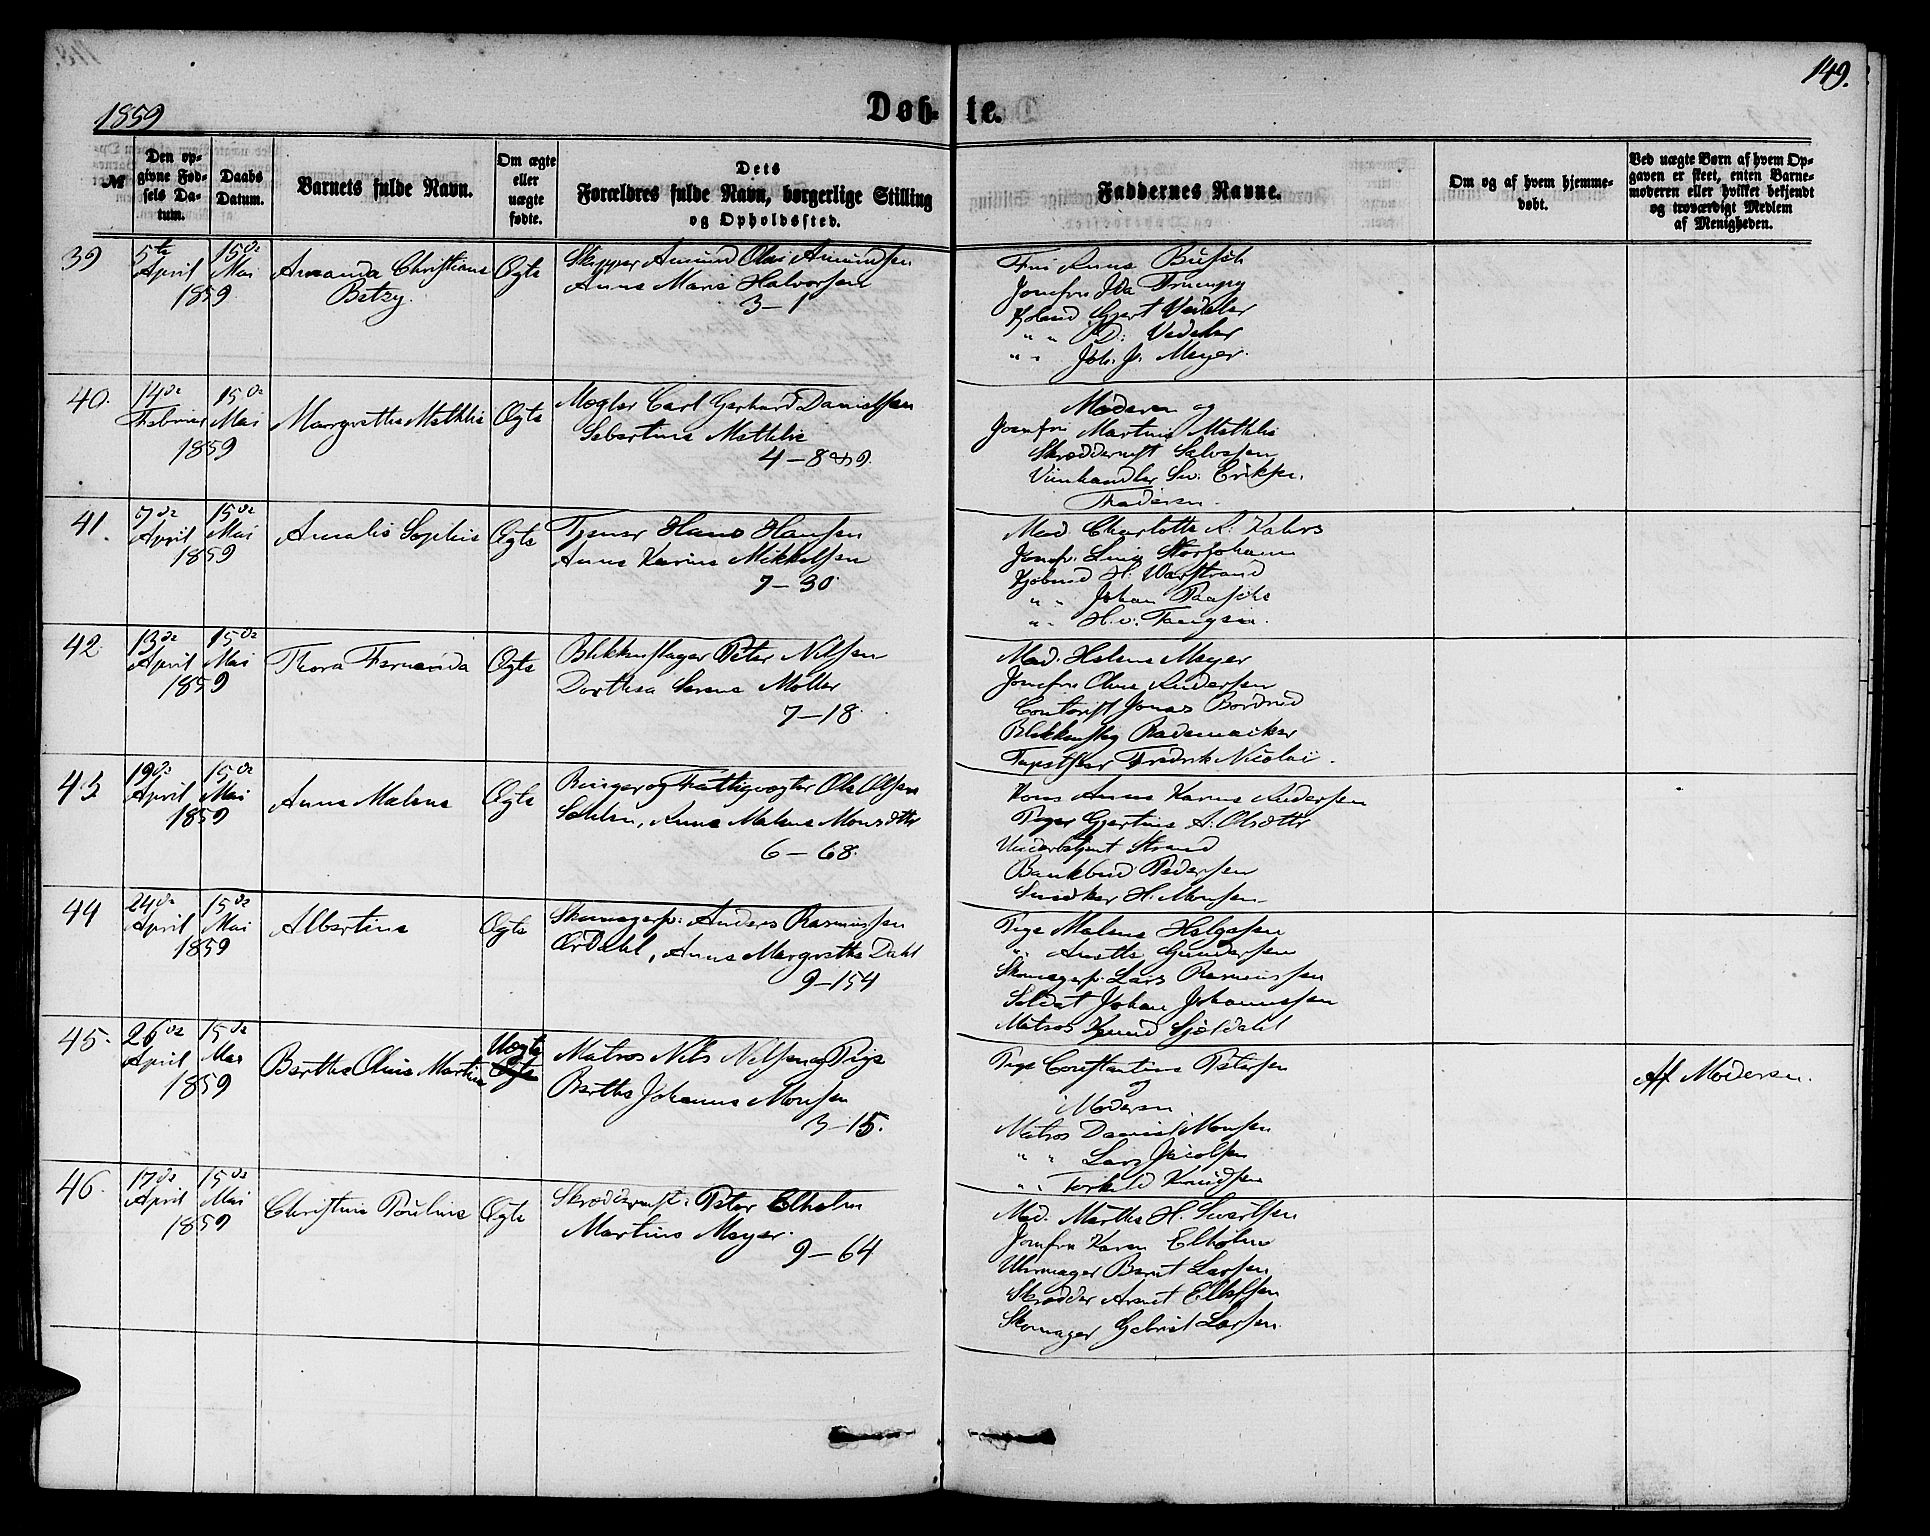 149.
1859
Døb- te.
№
Den op-
givne Fød-
sels Da-
tum.
Daabs
Datum.
Barnets fulde Navn.
Om ægte
eller
uægte
fødte.
Dets
Forældres fulde Navn, borgerlige Stilling
og Opholdssted.
Faddernes Navne.
Om og af hvem hjemme-
døbt.
Ved uægte Børn af hvem Op-
gaven er skeet, enten Barne-
moderen eller hvilket bekjendt
og troværdigt Medlem
af Menigheden.
39
5te April 1859
15de Mai
Amanda Christiane
Betzy.
Ægte
Skipper Amund Olai Amundsen
Anne Marie Halvorsen
3–1
Jomfru Ida Trumpy
Gjert Vedeler
" " D. Vedeler
" " Joh. J. Meyer.
40.
14de Februar 1859
15de Mai
Margrethe Methlie
Ægte
Mægler Carl Gerhard Danielsen
Sebertine Methlie
4–8 & 9.
Moderen og
Jomfru Martine Methlie
Skræddermst Salvesen
Viinhandler Sv. Eriksen.
Faderen.
41.
7de April 1859
15de Mai
Amalie Sophie
Ægte
Tjener Hans Hansen
Anne Karine Mikkelsen
7–30.
Mad Charlotte A. Kahrs
Jomfr. Storjohann
H. Warstrand
" " Johan Paasche
42.
13de April 1859
15de Mai
Thora Fernanda
Ægte
Blikkenslager Peter Nilsen
Dorthea Serene Møller
7–18.
Mad. Helene Meyer
Jomfru Oline Andersen
Contorist Jonas Bordevid
Blikkenslg Rademacker
Fredrik Nicolai.
43
19de April 1859
15de Mai
Anne Malene
Ægte
Ringer og Fattigvogter Ole Olsen
Sæhlen, Anne Malene Monsdtter
6–68.
Kone Anne Karine Andersen
Pige Gjertine A. Olsdtter
Underbetjent Strand
Bankbud Pedersen
Snedker H. Monsen
44
24de April 1859
15de Mai
Albertine
Ægte
Skomagersv: Anders Rasmussen
Ørdahl, Anne Margrethe Dahl
9–154
Pige Malene Helgesen
" Anette Gundersen
Skomagersv. Lars Rasmussen
Soldat Johan Johannessen
Matros Knud Gjeldahl
45.
26de April 1859
15de Mai
Berthe Oline Martine
Uægte
Ægte
Matros Nils Nilsen og Pige
Berthe Johanne Monsen
3–15.
Pige Constantine Petersen
og
Moderen
Matros Daniel Monsen
" " Lars Jacobsen
" " Torkild Knudsen
Af Moderen.
46.
17de April 1859
15de Mai
Christine Pouline
Ægte
Skræddermst: Peter Elholm
Martine Meyer.
9–64
Mad. Marthe H. Sivertsen
Jomfru Karen Elholm
Uhrmager Bernt Larsen
Skrædder Arent Ellefsen
Skomager Gabriel Larsen.